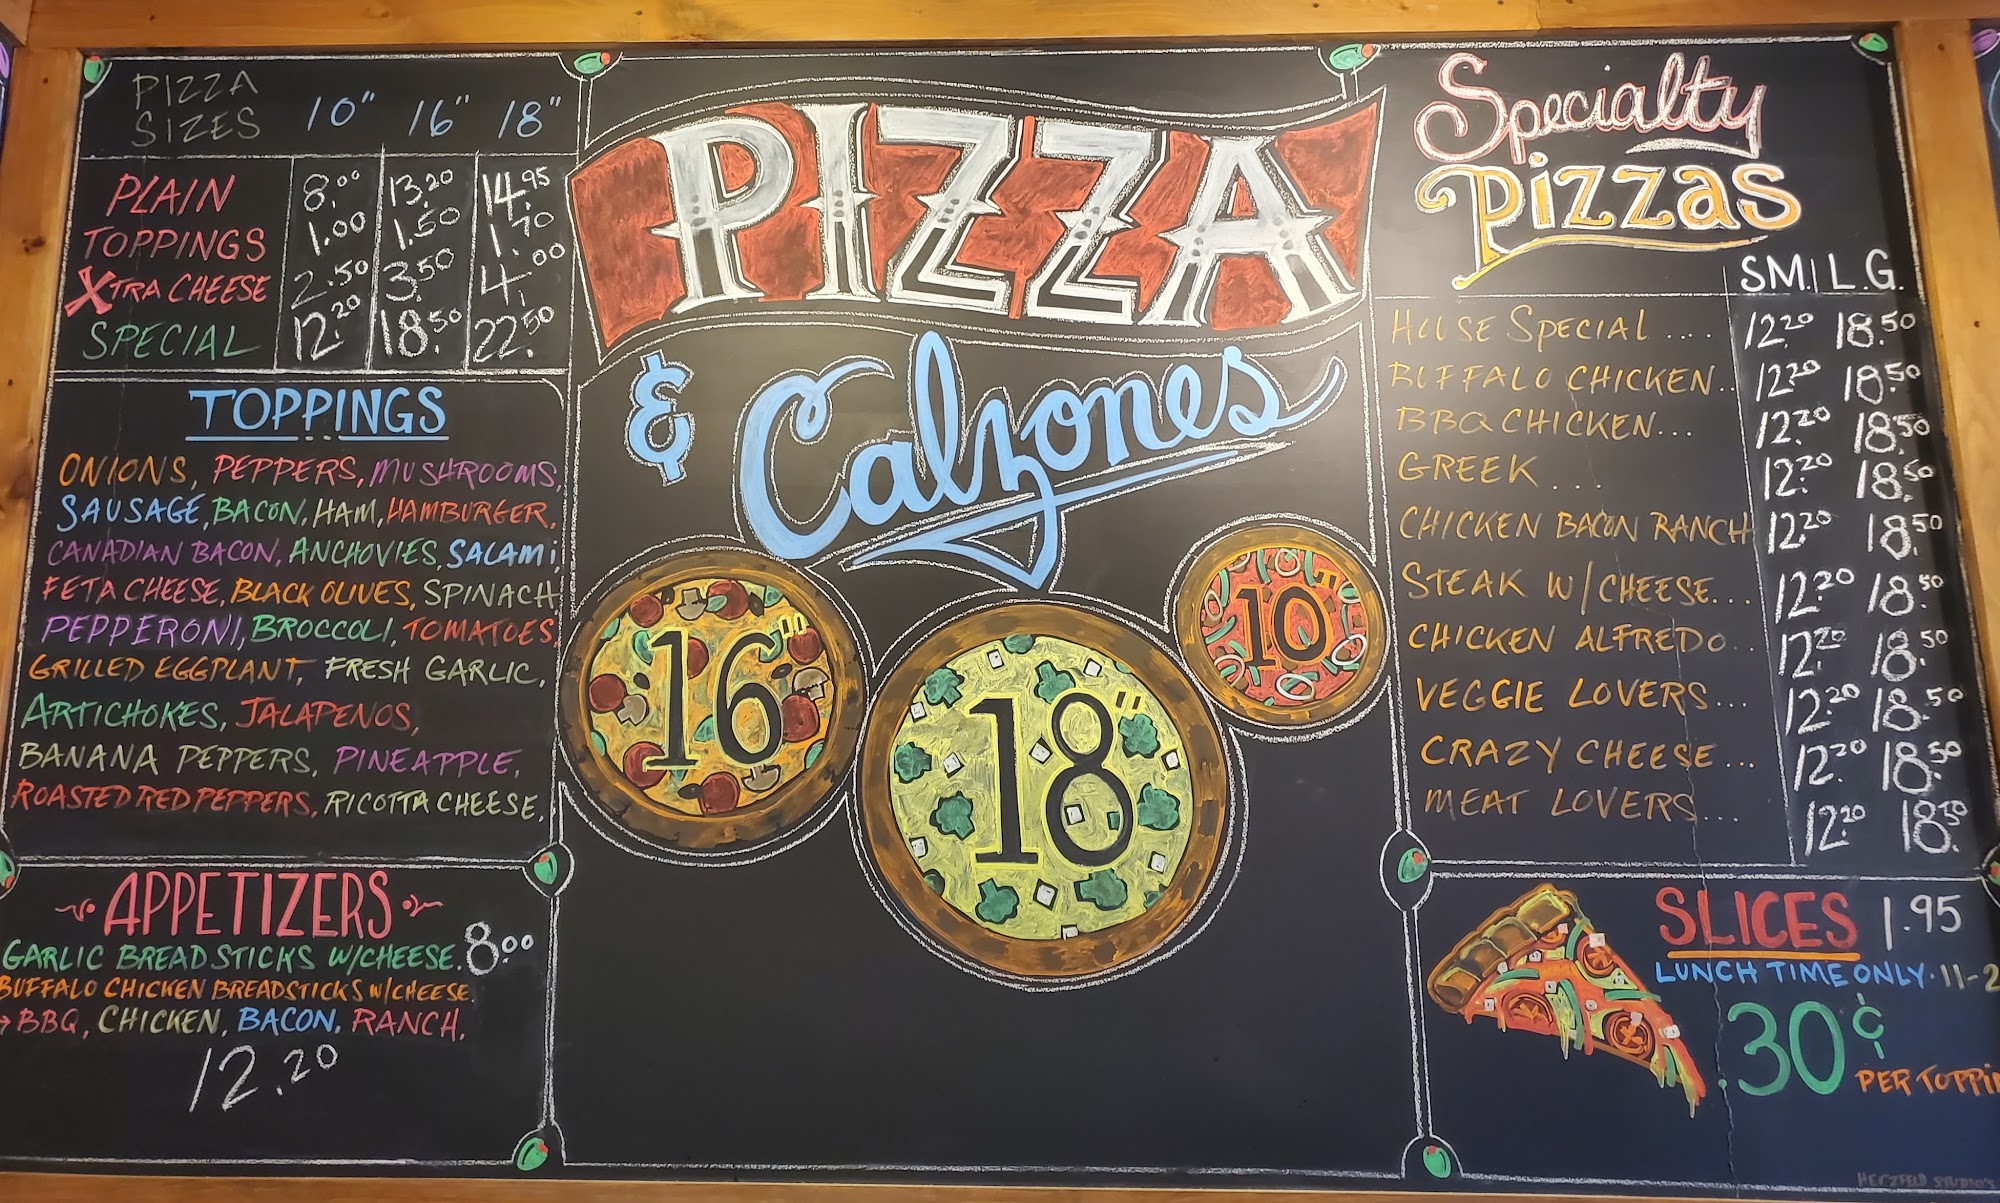 PIZZA
SIZES 10" 16" 18"
PLAIN 8.00 13.20 14.95
TOPPINGS 1.00 1.50 1.70
XTRA CHEESE 2.50 3.50 4.00
SPECIAL 12.20 18.50 22.50
TOPPINGS
ONIONS, PEPPERS, MUSHROOMS,
SAUSAGE, BACON, HAM, HAMBURGER,
CANADIAN BACON, ANCHOVIES, SALAMI,
FETA CHEESE, BLACK OLIVES, SPINACH
PEPPERONI, BROCCOLI, TOMATOES,
GRILLED EGGPLANT, FRESH GARLIC,
ARTICHOKES, JALAPENOS,
BANANA PEPPERS, PINEAPPLE,
ROASTED RED PEPPERS, RICOTTA CHEESE,
APPETIZERS
GARLIC BREAD STICKS W/CHEESE. 8.00
BUFFALO CHICKEN BREADSTICKS W/CHEESE.
→ BBQ, CHICKEN, BACON, RANCH,
12.20
PIZZA
& Calzones
16"
18"
10"
Specialty
Pizzas
SM. L.G.
HOUSE SPECIAL .... 12.20 18.50
BUFFALO CHICKEN.. 12.20 18.50
BBQ CHICKEN... 12.20 18.50
GREEK ... 12.20 18.50
CHICKEN BACON RANCH 12.20 18.50
STEAK W/CHEESE... 12.20 18.50
CHICKEN ALFREDO.. 12.20 18.50
VEGGIE LOVERS... 12.20 18.50
CRAZY CHEESE... 12.20 18.50
MEAT LOVERS... 12.20 18.50
SLICES 1.95
LUNCH TIME ONLY. 11-2
.30¢
PER TOPPIN
HERZFELD STUDIO'S